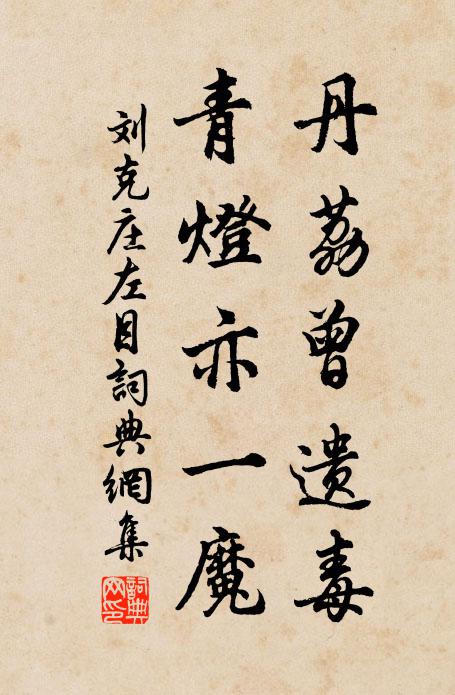 丹荔曾遗毒
青燈亦一魔
刘克庄左目詞典網集
詞典網印